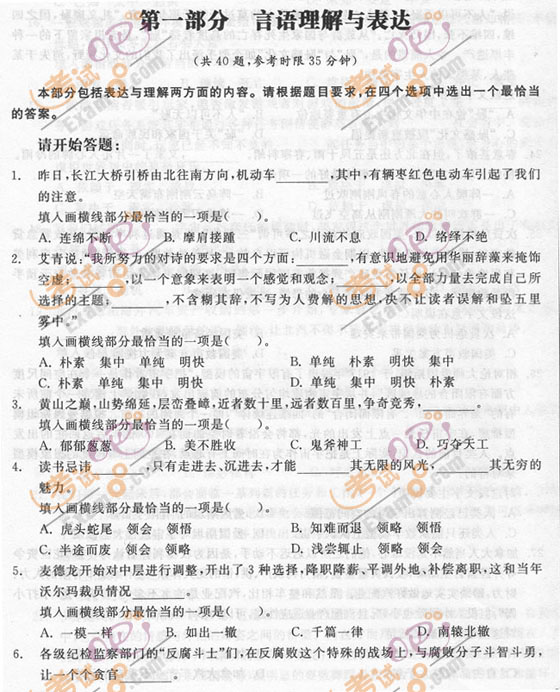 第一部分 言语理解与表达
(共40题,参考时限35分钟)
本部分包括表达与理解两方面的内容。请根据题目要求,在四个选项中选出一个最恰当
的答案。
请开始答题:
1. 昨日,长江大桥引桥由北往南方向,机动车________,其中,有辆枣红色电动车引起了我们
的注意。
填入画横线部分最恰当的一项是( )。
A. 连绵不断 B. 摩肩接踵 C. 川流不息 D. 络绎不绝
2. 艾青说:“我所努力的对诗的要求是四个方面:________,有意识地避免用华丽辞藻来掩饰
空虚;________,以一个意象来表明一个感觉和观念;________,以全部力量去完成自己所
选择的主题;________,不含糊其辞,不写为人费解的思想,决不让读者误解和坠五里
雾中。”
填入画横线部分最恰当的一项是( )。
A. 朴素 集中 单纯 明快 B. 单纯 朴素 明快 集中
C. 朴素 单纯 集中 明快 D. 单纯 集中 朴素 明快
3. 黄山之巅,山势绵延,层峦叠嶂,近者数十里,远者数百里,争奇竞秀,________。
填入画横线部分最恰当的一项是( )。
A. 郁郁葱葱 B. 美不胜收 C. 鬼斧神工 D. 巧夺天工
4. 读书忌讳________,只有走进去、沉进去,才能________其无限的风光,________其无穷的
魅力。
填入画横线部分最恰当的一项是( )。
A. 虎头蛇尾 领会 领悟 B. 知难而退 领略 领悟
C. 半途而废 领会 领略 D. 浅尝辄止 领略 领会
5. 麦德龙开始对中层进行调整,开出了3种选择,降职降薪、平调外地、补偿离职,这和当年
沃尔玛裁员情况________。
填入画横线部分最恰当的一项是( )。
A. 一模一样 B. 如出一辙 C. 千篇一律 D. 南辕北辙
6. 各级纪检监察部门的“反腐斗士”们,在反腐败这个特殊的战场上,与腐败分子斗智斗勇,
让一个个贪官________。